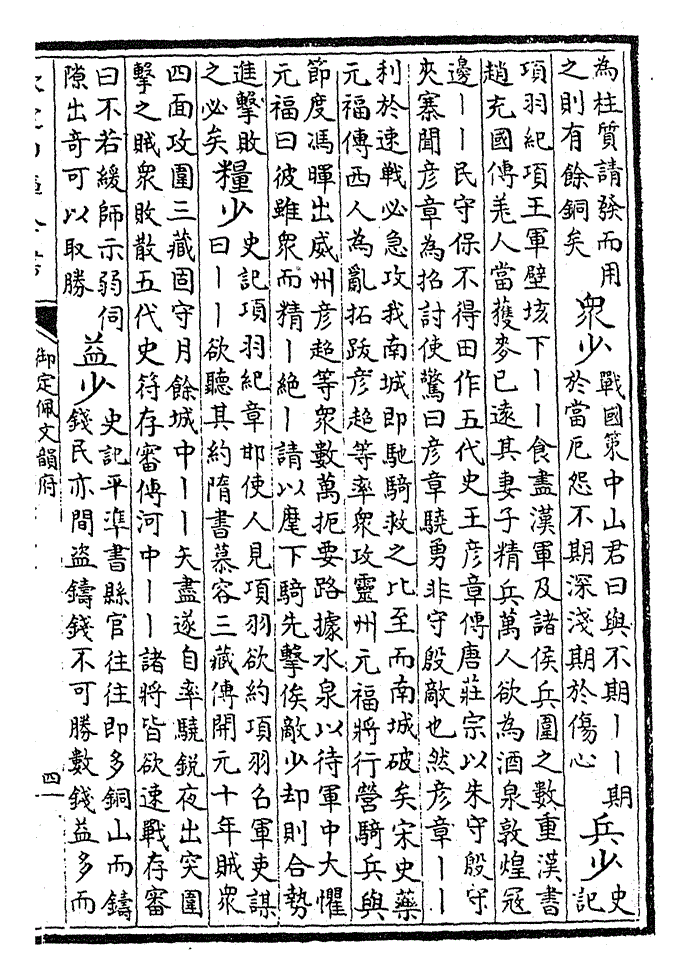 為柱質請發而用
之則有餘銅矣
衆少
戰國策中山君曰與不期丨丨期
於當厄怨不期深淺期於傷心
兵少
史
記
項羽紀項王軍壁垓下丨丨食盡漢軍及諸侯兵圍之數重漢書
趙充國傳羌人當獲麥已遠其妻子精兵萬人欲為酒泉敦煌冦
邊丨丨民守保不得田作五代史王彦章傳唐莊宗以朱守殷守
夾寨聞彦章為招討使驚曰彦章驍勇非守殷敵也然彦章丨丨
利於速戰必急攻我南城即馳騎救之比至而南城破矣宋史藥
元福傳西人為亂拓跋彦超等率衆攻靈州元福將行營騎兵與
節度馮暉出威州彦超等衆數萬扼要路據水泉以待軍中大懼
元福曰彼雖衆而精丨絶丨請以麾下騎先擊俟敵少却則合勢
進擊敗
之必矣
糧少
史記項羽紀章邯使人見項羽欲約項羽召軍吏謀
曰丨丨欲聽其約隋書慕容三藏傳開元十年賊衆
四面攻圍三藏固守月餘城中丨丨矢盡遂自率驍鋭夜出突圍
擊之賊衆敗散五代史符存審傳河中丨丨諸將皆欲速戰存審
曰不若緩師示弱伺
隙出奇可以取勝
益少
史記平準書縣官往往即多銅山而鑄
錢民亦間盗鑄錢不可勝數錢益多而
御定佩文韻府
四